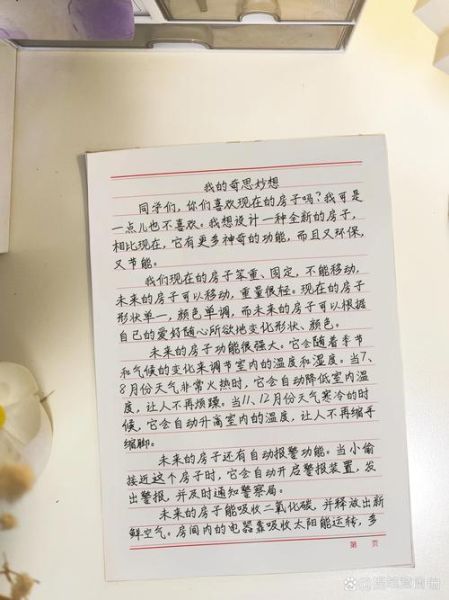 我的奇思妙想
同学们，你们喜欢现在的房子吗？我可是
一点儿也不喜欢。我想设计一种全新的房子，
相比现在，它有更多神奇的功能，而且又环保，
又节能。
我们现在的房子笨重、固定，不能移动，
未来的房子可以移动，重量很轻。现在的房子
形状单一，颜色单调，而未来的房子可以根据
自己的爱好随心所欲地变化形状、颜色。
未来的房子功能很强大。它会随着季节
和气候的变化来调节室内的温度和湿度。当7、
8月份天气非常火热时，它会自动降低室内温
度，让人不再烦躁。当11、12月份天气寒冷的时
候，它会自动升高室内的温度，让人不再缩手
缩脚。
未来的房子还有自动报警功能。当小偷
接近这个房子时，它会自动开启警报装置，发
出警报，并及时通知警察局。
未来的房子能吸收二氧化碳，并释放出新
鲜空气。房间内的电器靠吸收太阳能运转，多
第 页